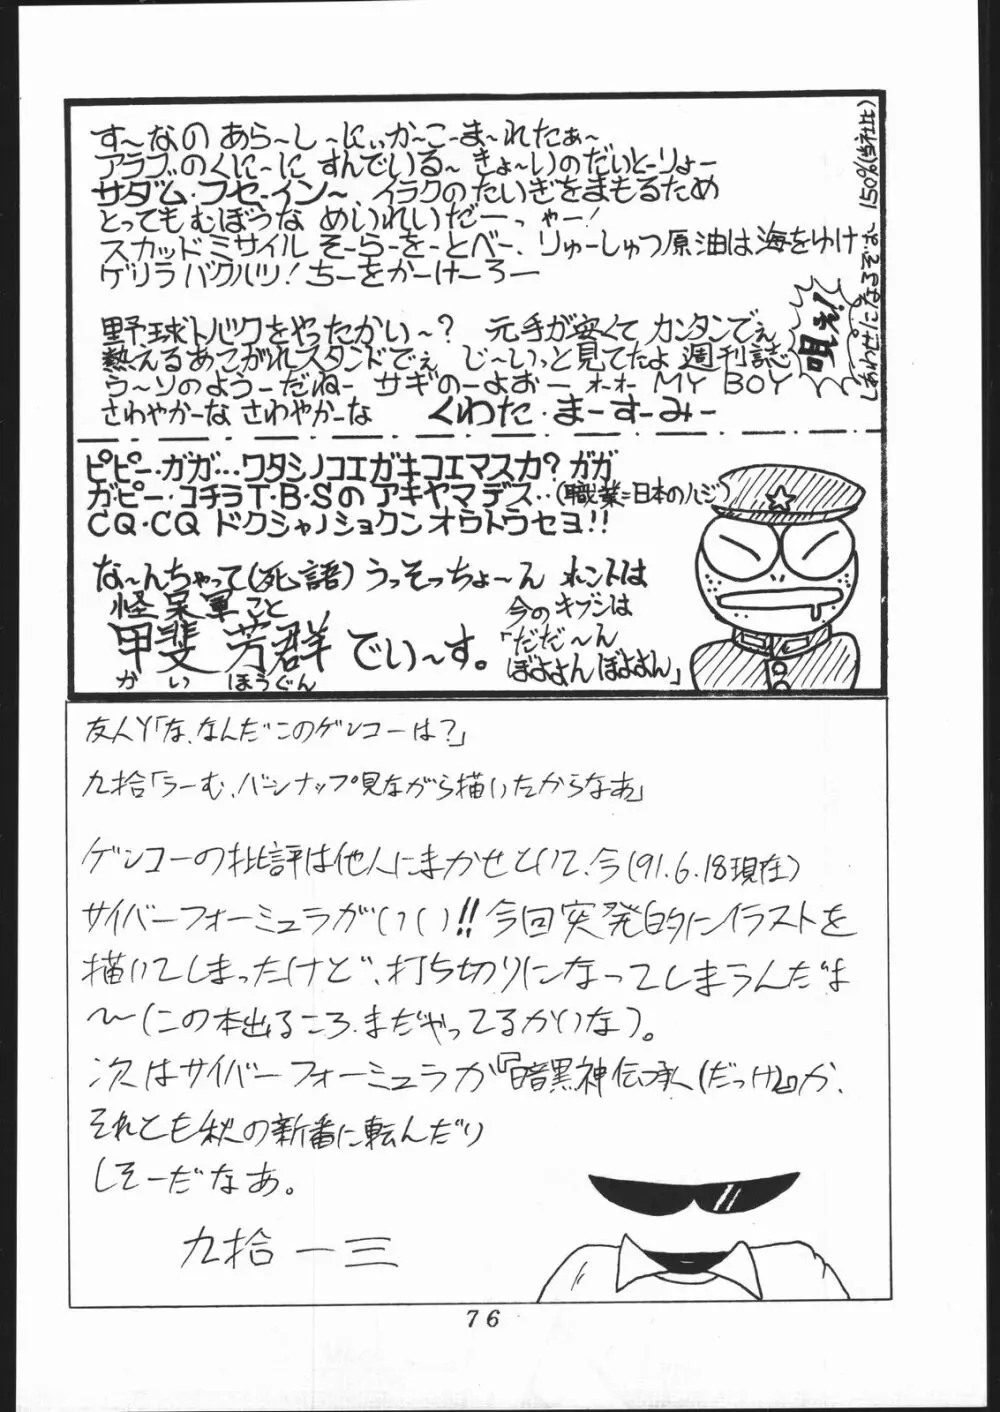 す〜なの あら〜し〜にぃか〜こ〜ま〜れたぁ〜
アラブのくに〜に すんでいる〜 きょ〜いのだいと〜りょー
サダム・フセーイン〜、イラクのたいぎをまもるため
とってもむぼうな めいれいだーっ ゃー!
スカッドミサイル そーらーをーとべー、りゅーしゅつ原油は海をゆけ
ゲリラバクハツ! ちーをかーけーろー
野球トバクをやったかい〜? 元手が安くて カンタンでぇ
熱えるあこがれスタンドでぇ じ〜いっと見てたよ 週刊誌
う〜ソのようーだねー サギのーよおー ォーォー MY BOY
さわやかーな さわやかーな くわた・まーすーみー
唄え!
しあわせになるぞよ、150%(当社比)
ピピー・ガガ…ワタシノコエガキコエマスカ? ガガ
ガピー・コチラT・B・Sの アキヤマデス・・(職業=日本のハジ)
CQ・CQ ドクシャノショクンオウトウセヨ!!
な〜んちゃって(死語) うっそっちょ〜ん ホントは
怪呆軍こと
甲斐 芳群でい〜す。
か い ほうぐん
今のキブンは
「だだ〜ん
ぼよよんぼよよん」
友人Y「な、なんだこのゲンコーは?」
九拾「うーむ、バーンナップ見ながら描いたからなあ」
ゲンコーの批評は他人にまかせといて、今(91.6.18現在)
サイバーフォーミュラがいい!! 今回突発的にイラストを
描いてしまったけど、打ち切りになってしまうんだよ
〜(この本出るころ、まだやってるかいな)。
次はサイバーフォーミュラか『暗黒神伝承(だっけ)』か、
それとも秋の新番に転んだり
しそーだなあ。
九拾 一三
76